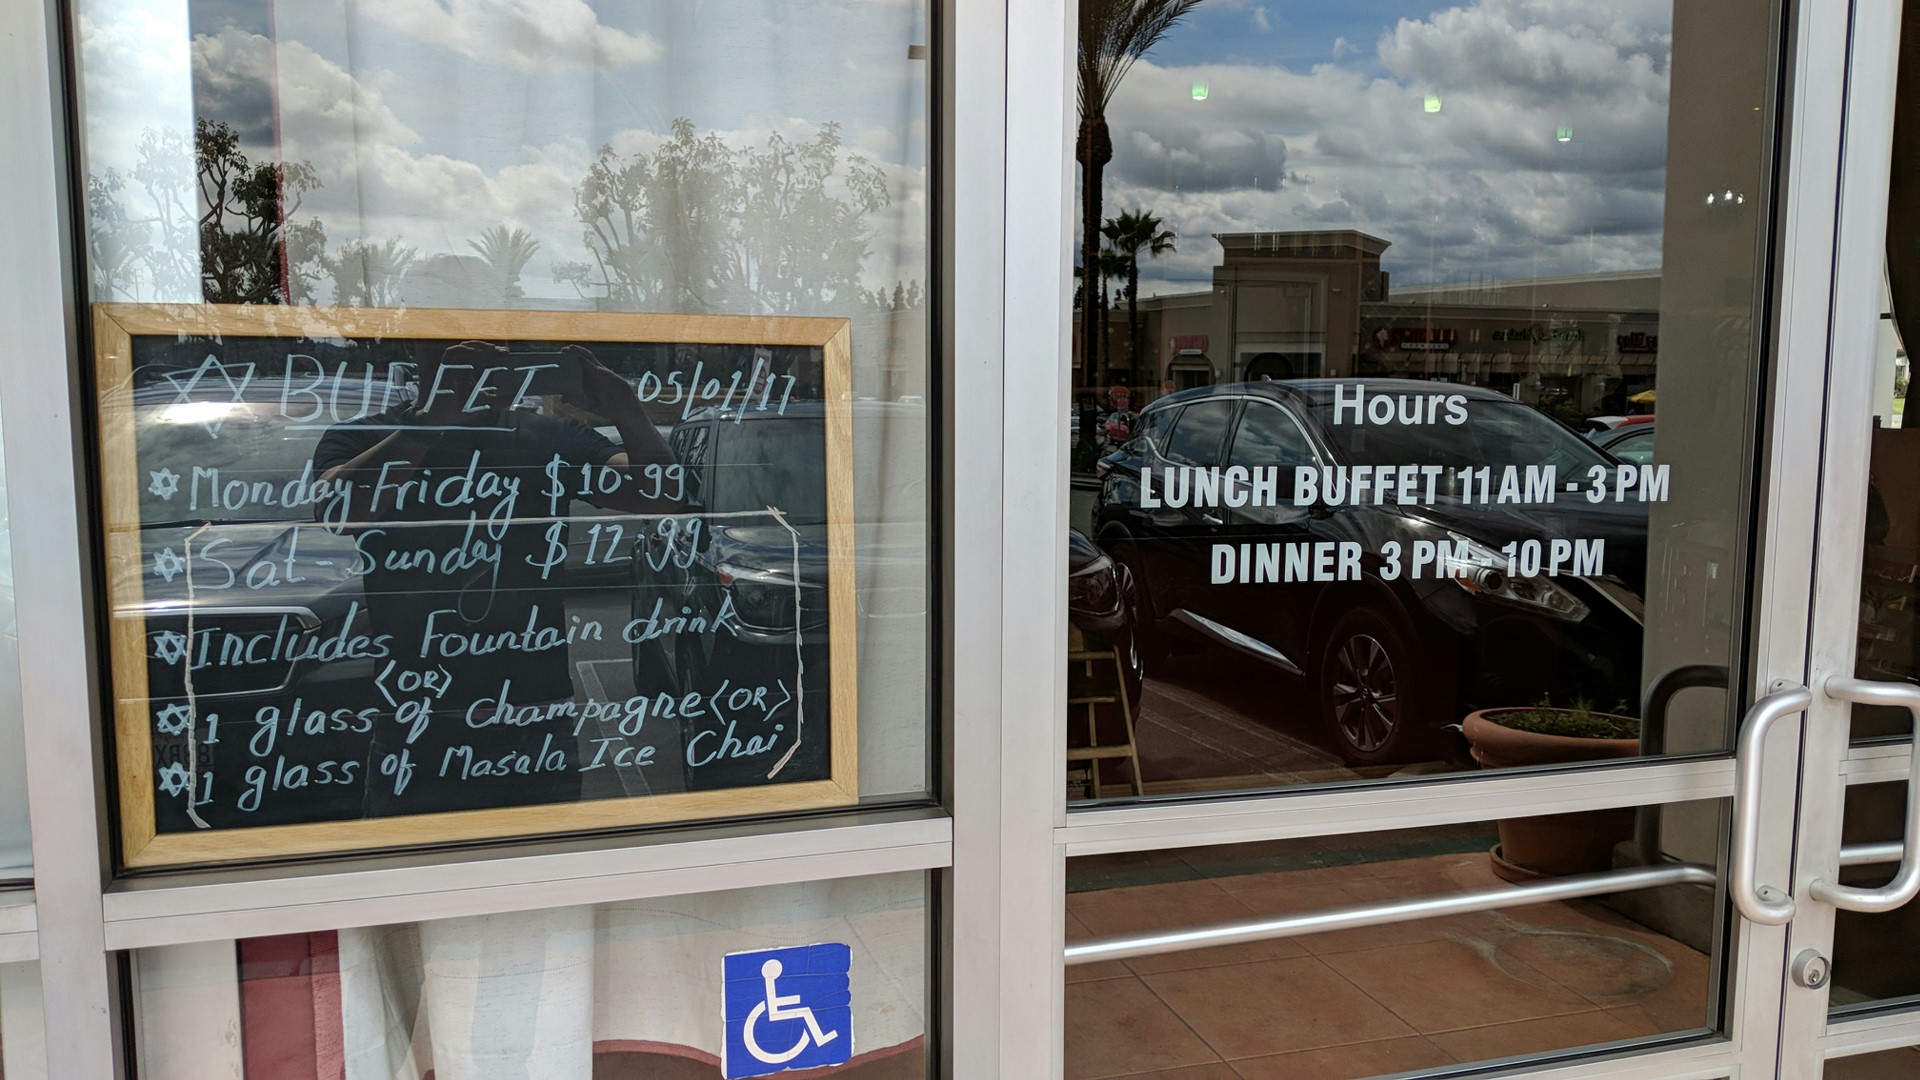 BUFFET 05/01/17
Monday-Friday $10.99
Sat-Sunday $12.99
Includes Fountain drink
<OR>
1 glass of champagne <OR>
1 glass of Masala Ice Chai
Hours
LUNCH BUFFET 11AM - 3PM
DINNER 3 PM - 10PM